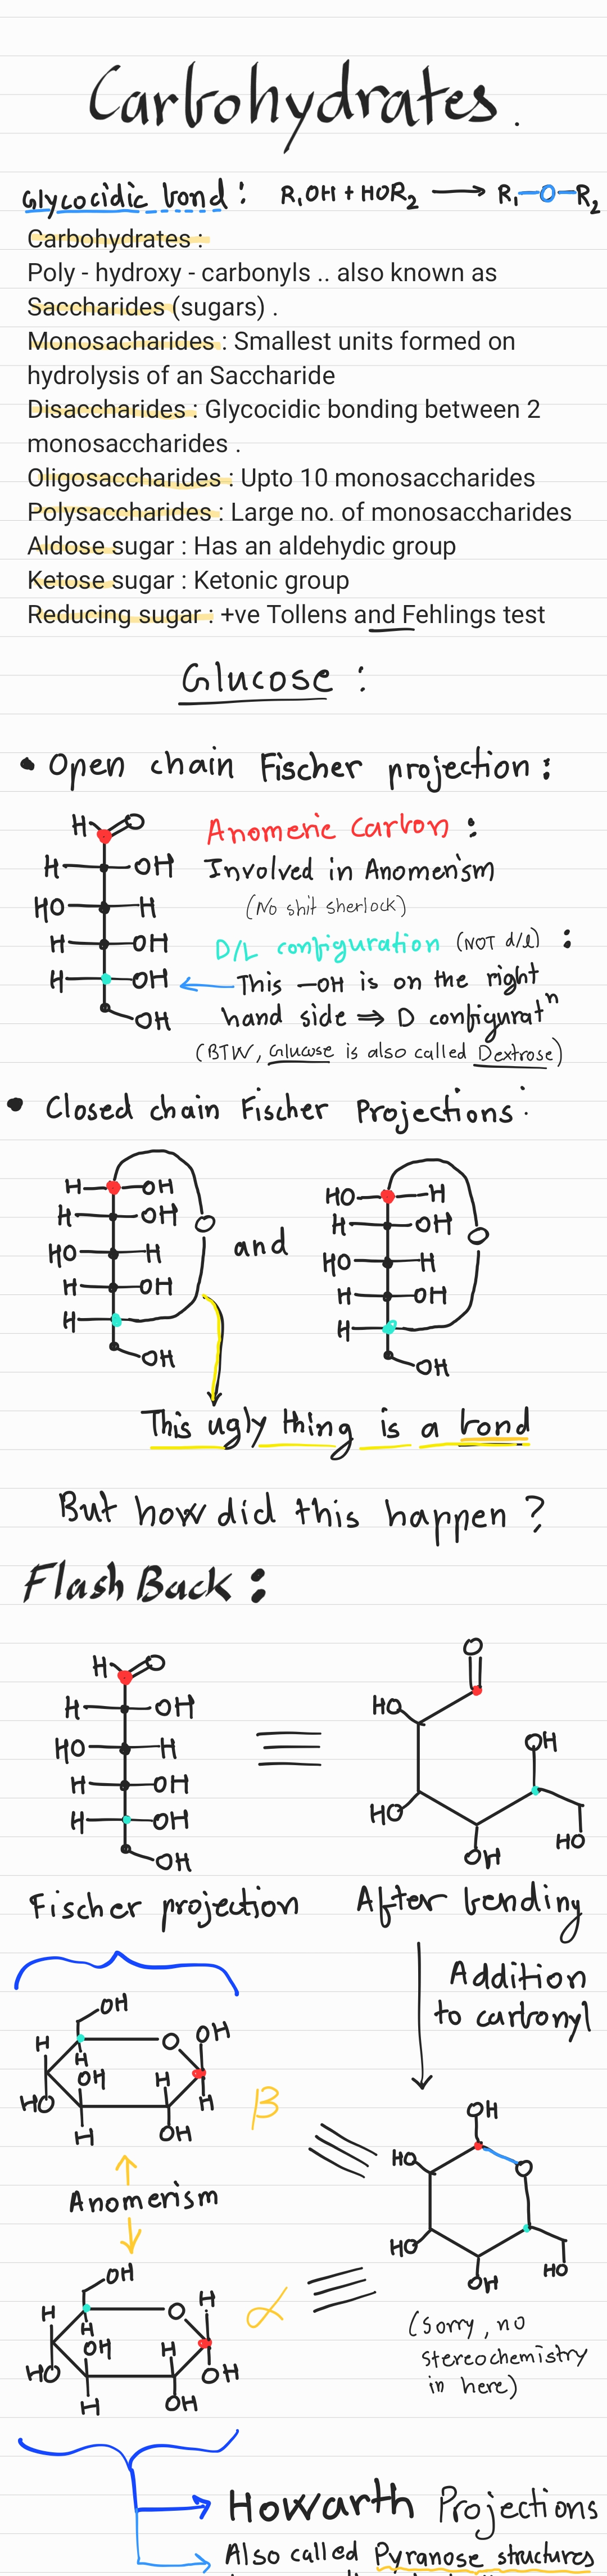 Carbohydrates.
Glycocidic bond : R₁OH + HOR₂ → R₁-O-R₂
Carbohydrates :
Poly - hydroxy - carbonyls .. also known as
Saccharides (sugars) .
Monosacharides : Smallest units formed on
hydrolysis of an Saccharide
Disaccharides : Glycocidic bonding between 2
monosaccharides .
Oligosaccharides : Upto 10 monosaccharides
Polysaccharides : Large no. of monosaccharides
Aldose sugar : Has an aldehydic group
Ketose sugar : Ketonic group
Reducing sugar : +ve Tollens and Fehlings test
Glucose :
• Open chain Fischer projection :
H O
H OH
HO H
H OH
H OH
OH
Anomeric Carbon :
Involved in Anomerism
(No shit sherlock)
D/L configuration (NOT d/l) :
This -OH is on the right
hand side ⇒ D configuratⁿ
(BTW, Glucose is also called Dextrose)
• Closed chain Fischer Projections :
H OH
H OH
HO H
H OH
H
OH
O
and
HO H
H OH
HO H
H OH
H
OH
O
This ugly thing is a bond
But how did this happen ?
Flash Back :
H O
H OH
HO H
H OH
H OH
OH
≡
O
HO
OH
HO
OH
HO
Fischer projection
After bending
Addition
to carbonyl
OH
O OH
H
H
OH H H
HO
H OH
β
Anomerism
OH
O H
H
H
OH H
HO OH
H OH
α
OH
HO O
HO
OH HO
(Sorry, no
stereochemistry
in here)
Howarth Projections
Also called Pyranose structures